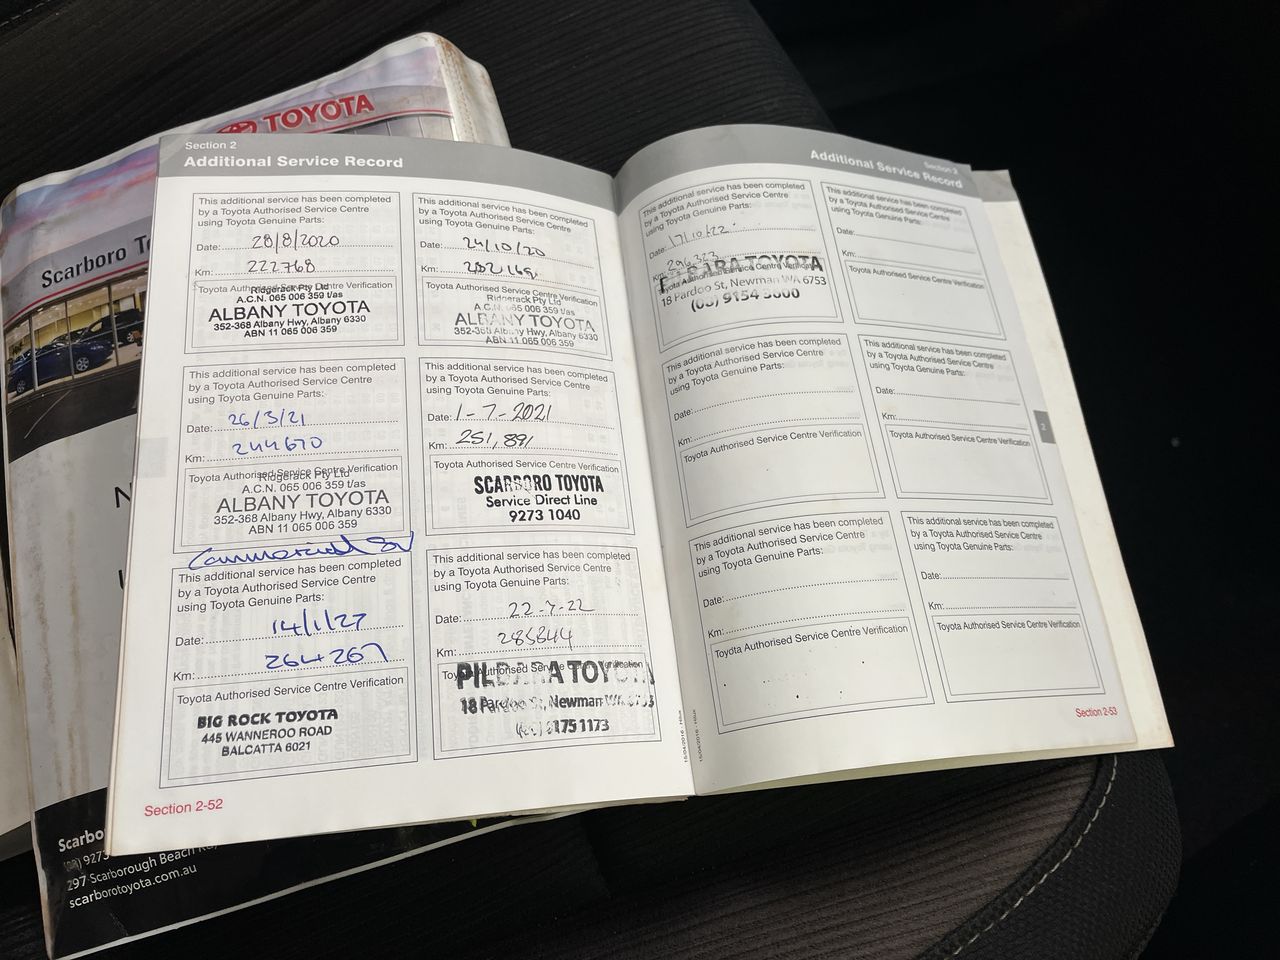 TOYOTA
Scarboro To
Section 2
Additional Service Record
This additional service has been completed
by a Toyota Authorised Service Centre
using Toyota Genuine Parts:
Date: 28/8/2020
Km: 222768
Toyota Authorised Service Centre Verification
Ridgerack Pty Ltd
A.C.N. 065 006 359 t/as
ALBANY TOYOTA
352-368 Albany Hwy, Albany 6330
ABN 11 065 006 359
This additional service has been completed
by a Toyota Authorised Service Centre
using Toyota Genuine Parts:
Date: 24/10/20
Km:
Toyota Authorised Service Centre Verification
Ridgerack Pty Ltd
A.C.N. 065 006 359 t/as
ALBANY TOYOTA
352-368 Albany Hwy, Albany 6330
ABN 11 065 006 359
This additional service has been completed
by a Toyota Authorised Service Centre
using Toyota Genuine Parts:
Date: 26/3/21
Km: 244670
Toyota Authorised Service Centre Verification
Ridgerack Pty Ltd
A.C.N. 065 006 359 t/as
ALBANY TOYOTA
352-368 Albany Hwy, Albany 6330
ABN 11 065 006 359
This additional service has been completed
by a Toyota Authorised Service Centre
using Toyota Genuine Parts:
Date: 1-7-2021
Km: 251,891
Toyota Authorised Service Centre Verification
SCARBORO TOYOTA
Service Direct Line
9273 1040
Commercial
This additional service has been completed
by a Toyota Authorised Service Centre
using Toyota Genuine Parts:
Date: 14/1/22
Km: 264267
Toyota Authorised Service Centre Verification
BIG ROCK TOYOTA
445 WANNEROO ROAD
BALCATTA 6021
This additional service has been completed
by a Toyota Authorised Service Centre
using Toyota Genuine Parts:
Date: 22-7-22
Km: 285844
Toyota Authorised Service Centre Verification
PILBARA TOYOTA
18 Pardoo St, Newman WA 6753
9175 1173
Section 2-52
Section 2
Additional Service Record
This additional service has been completed
by a Toyota Authorised Service Centre
using Toyota Genuine Parts:
Date: 17/10/22
Km: 296323
Toyota Authorised Service Centre Verification
PILBARA TOYOTA
18 Pardoo St, Newman WA 6753
(08) 9154 5000
This additional service has been completed
by a Toyota Authorised Service Centre
using Toyota Genuine Parts:
Date:
Km:
Toyota Authorised Service Centre Verification
This additional service has been completed
by a Toyota Authorised Service Centre
using Toyota Genuine Parts:
Date:
Km:
Toyota Authorised Service Centre Verification
This additional service has been completed
by a Toyota Authorised Service Centre
using Toyota Genuine Parts:
Date:
Km:
Toyota Authorised Service Centre Verification
This additional service has been completed
by a Toyota Authorised Service Centre
using Toyota Genuine Parts:
Date:
Km:
Toyota Authorised Service Centre Verification
This additional service has been completed
by a Toyota Authorised Service Centre
using Toyota Genuine Parts:
Date:
Km:
Toyota Authorised Service Centre Verification
2
Section 2-53
Scarbo
(08) 9273
297 Scarborough Beach
scarborotoyota.com.au